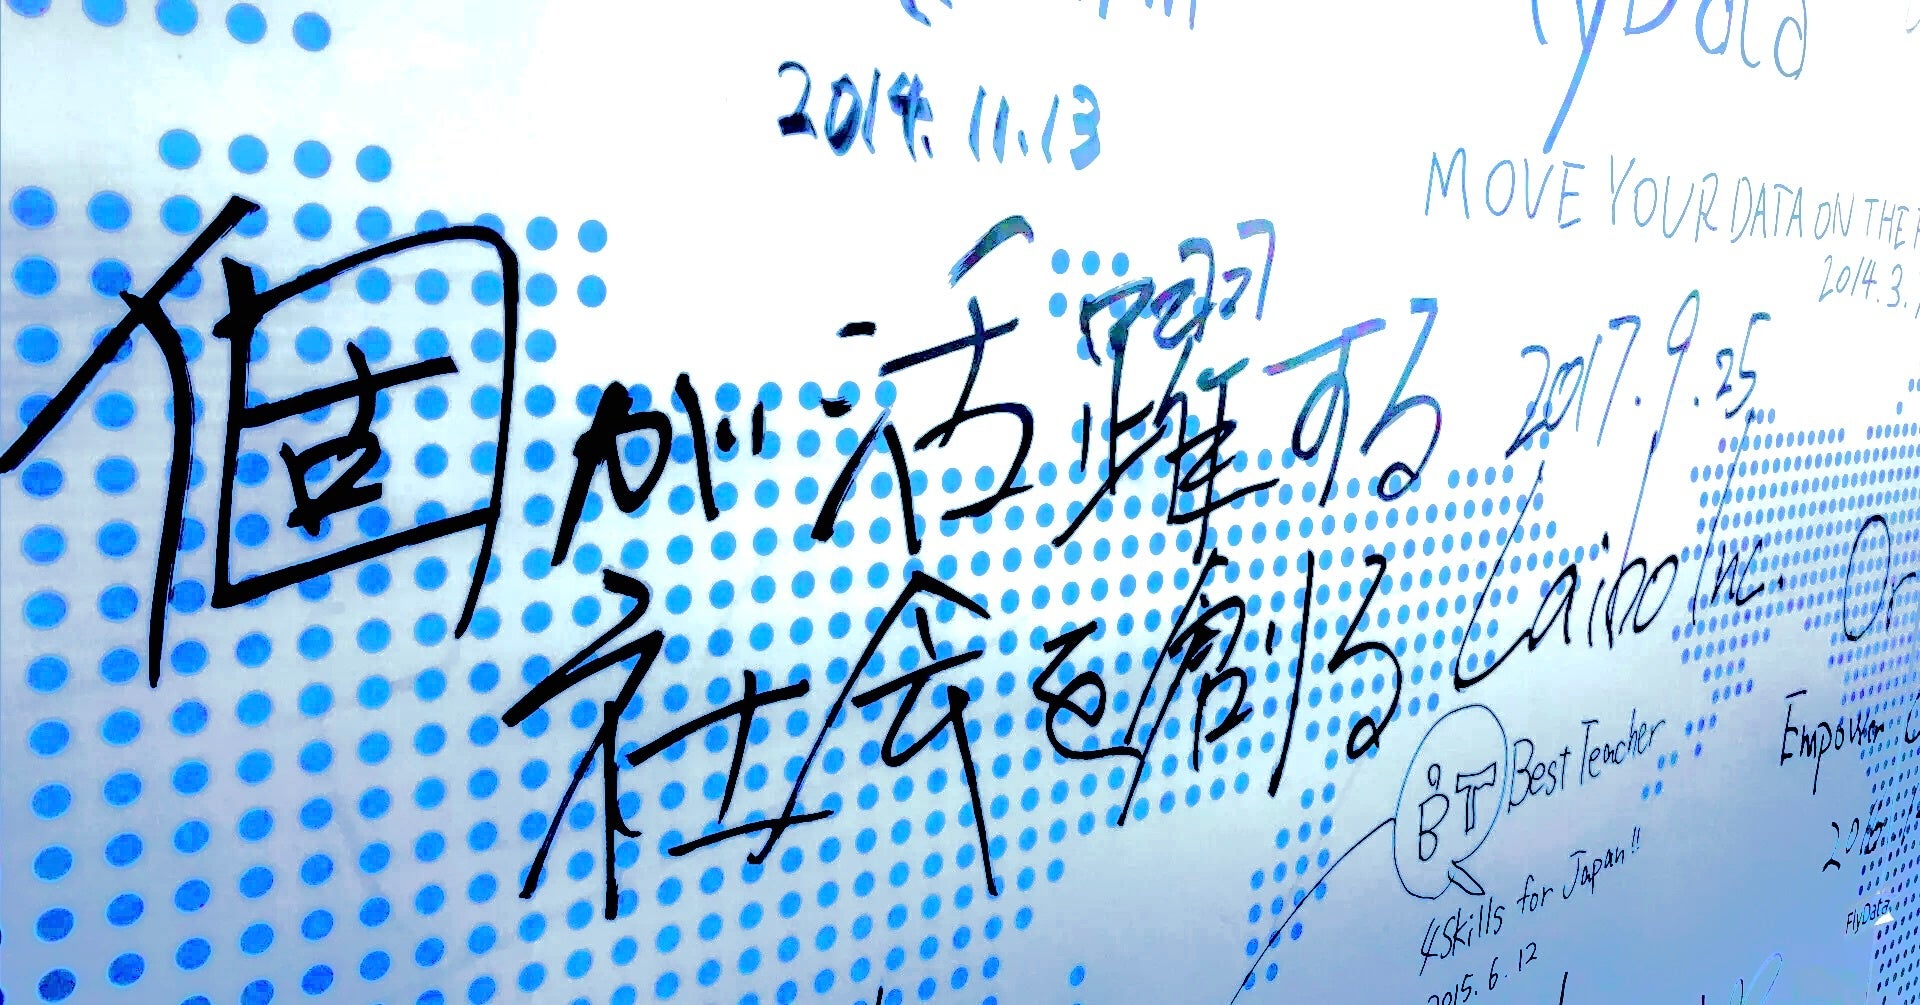 2014.11.13
FlyData
MOVE YOUR DATA ON THE
2014.3.
個が活躍する
社会を創る
2017.9.25
Laibo Inc.
BT Best Teacher
4Skills for Japan!!
2015.6.12
Empower
FlyData